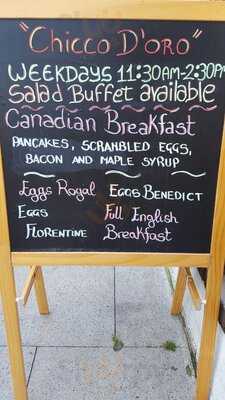 "Chicco D'oro"
WEEKDAYS 11:30AM-2:30PM
Salad Buffet available
Canadian Breakfast
PANCAKES, SCRAMBLED EGGS,
BACON AND MAPLE SYRUP
Eggs Royal Eggs Benedict
Eggs Full English
Florentine Breakfast